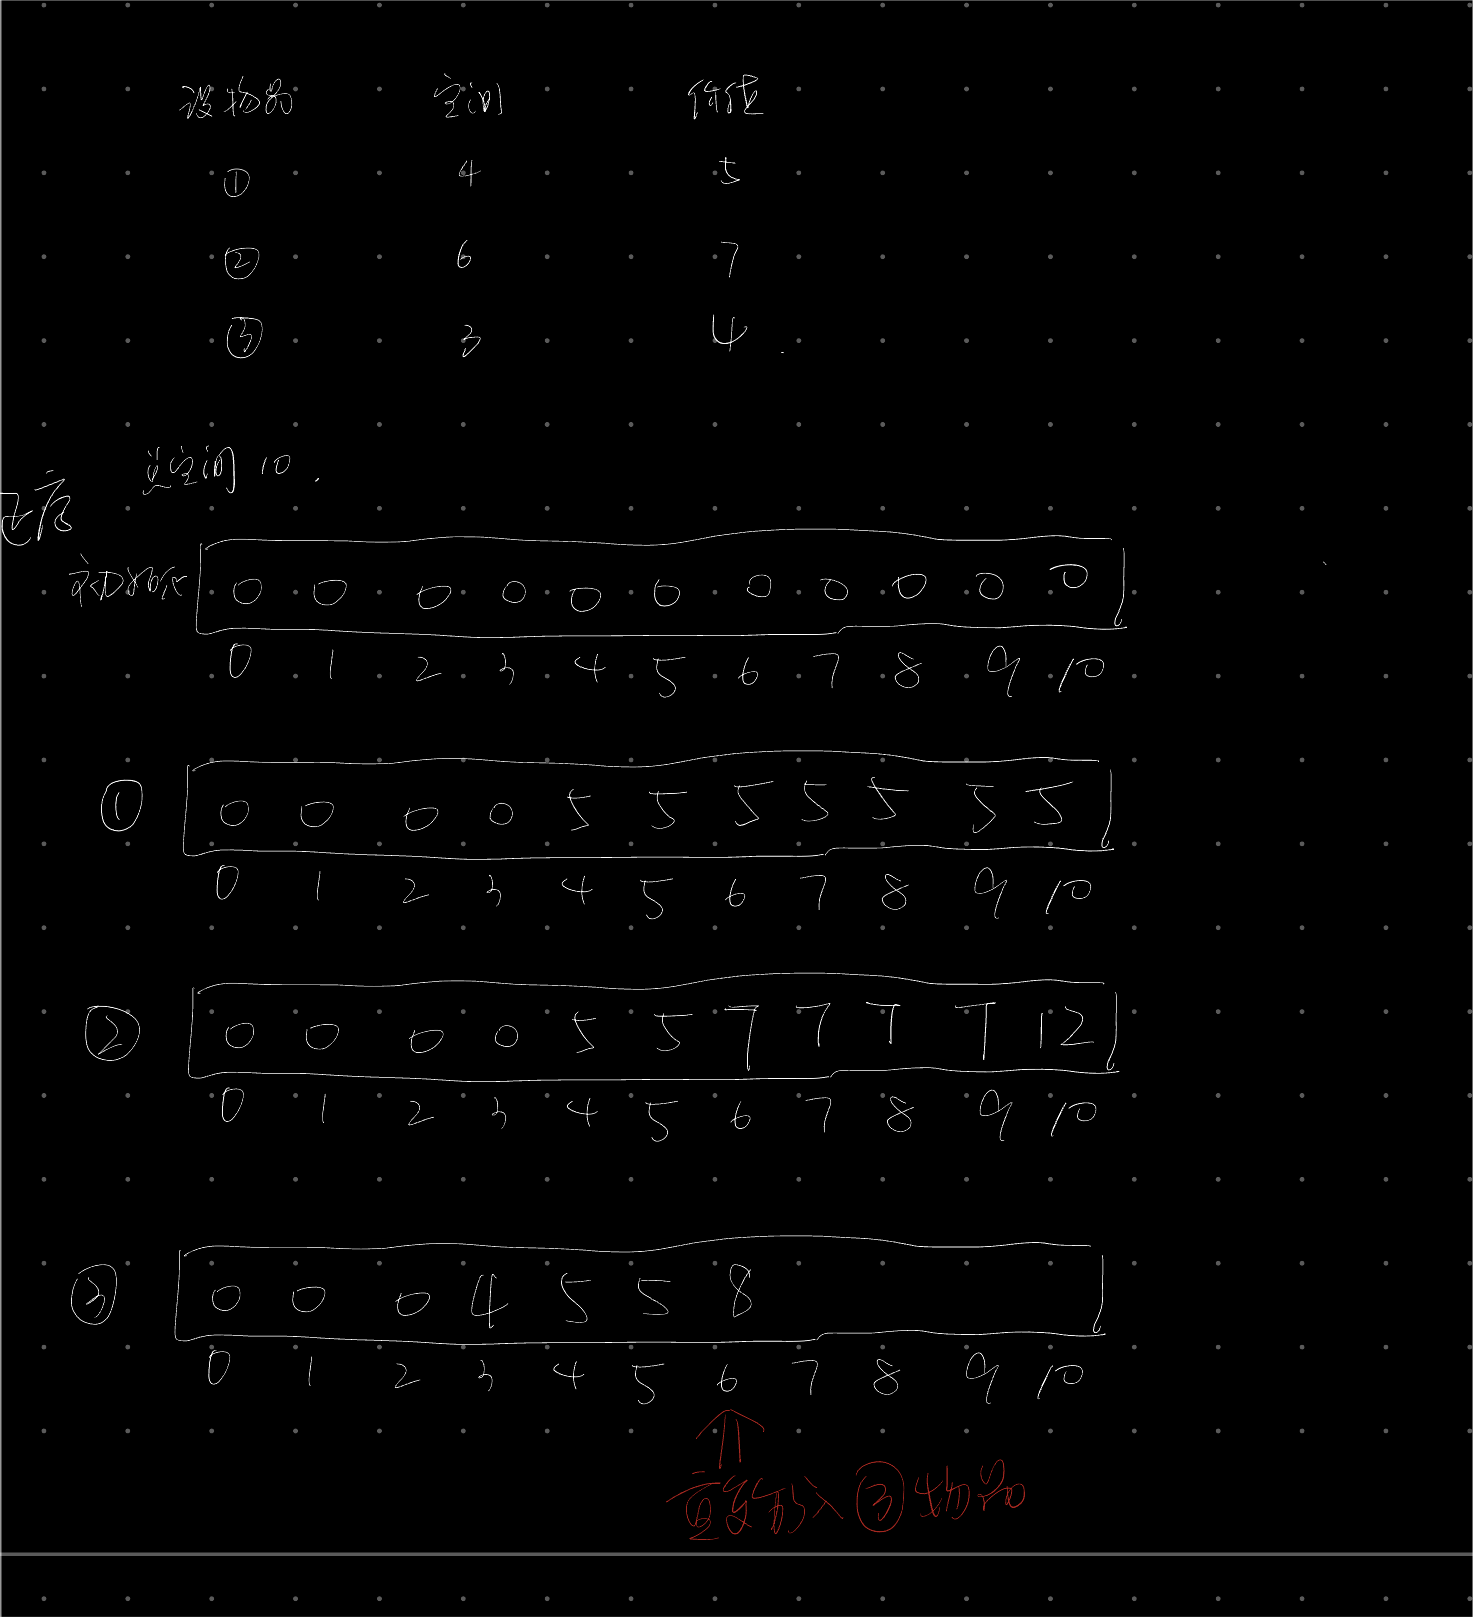 设物品 空间 价值
① 4 5
② 6 7
③ 3 4
总空间 10.
正序
初始化 0 0 0 0 0 0 0 0 0 0 0
0 1 2 3 4 5 6 7 8 9 10
① 0 0 0 0 5 5 5 5 5 5 5
0 1 2 3 4 5 6 7 8 9 10
② 0 0 0 0 5 5 7 7 7 7 12
0 1 2 3 4 5 6 7 8 9 10
③ 0 0 0 4 5 5 8
0 1 2 3 4 5 6 7 8 9 10
重复放入③物品